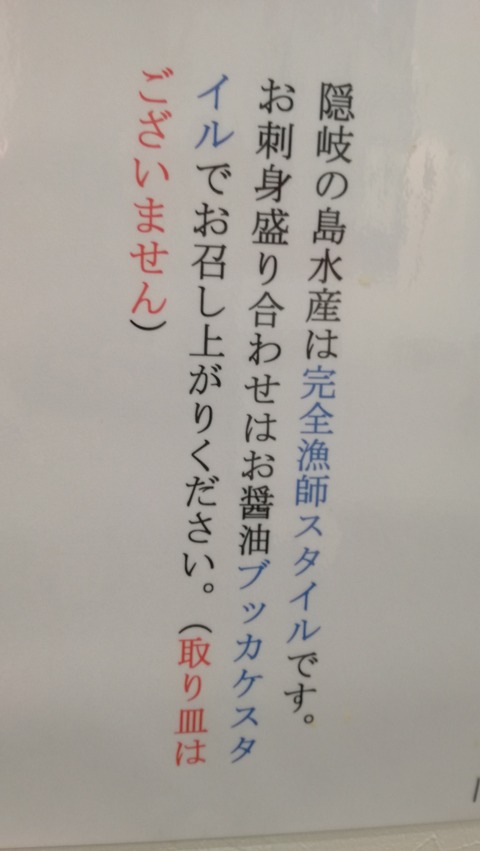 隠岐の島水産は完全漁師スタイルです。
お刺身盛り合わせはお醤油ブッカケスタ
イルでお召し上がりください。（取り皿は
ございません）